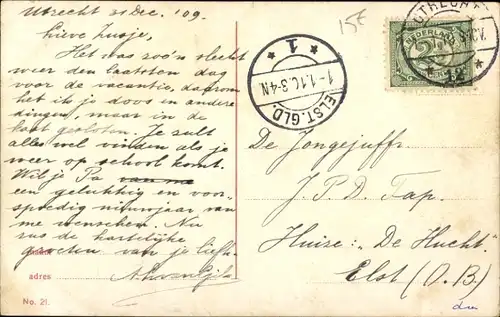 Utrecht 31 Dec. '09.
Lieve Zusje,
Het was zoo'n slecht
weer den laatsten dag
voor de vacantie, daarom
het ik je doos en andere
dingen, maar in de
kast gesloten. Je zult
alles wel vinden als je
weer op school komt.
Wil je Pa van me
een gelukkig en voor-
spoedig nieuwjaar van
me wenschen. Nu
zus de hartelijke
groeten van je liefh.
adres
No. 21.
15€
1
1-1.10.3-4N
ELST.GLD.
UTRECHT
12
NEDERLAND
2½
De Jongejuffr.
J. P. D. Tap.
Huize: "De Hucht".
Elst (O.B.)